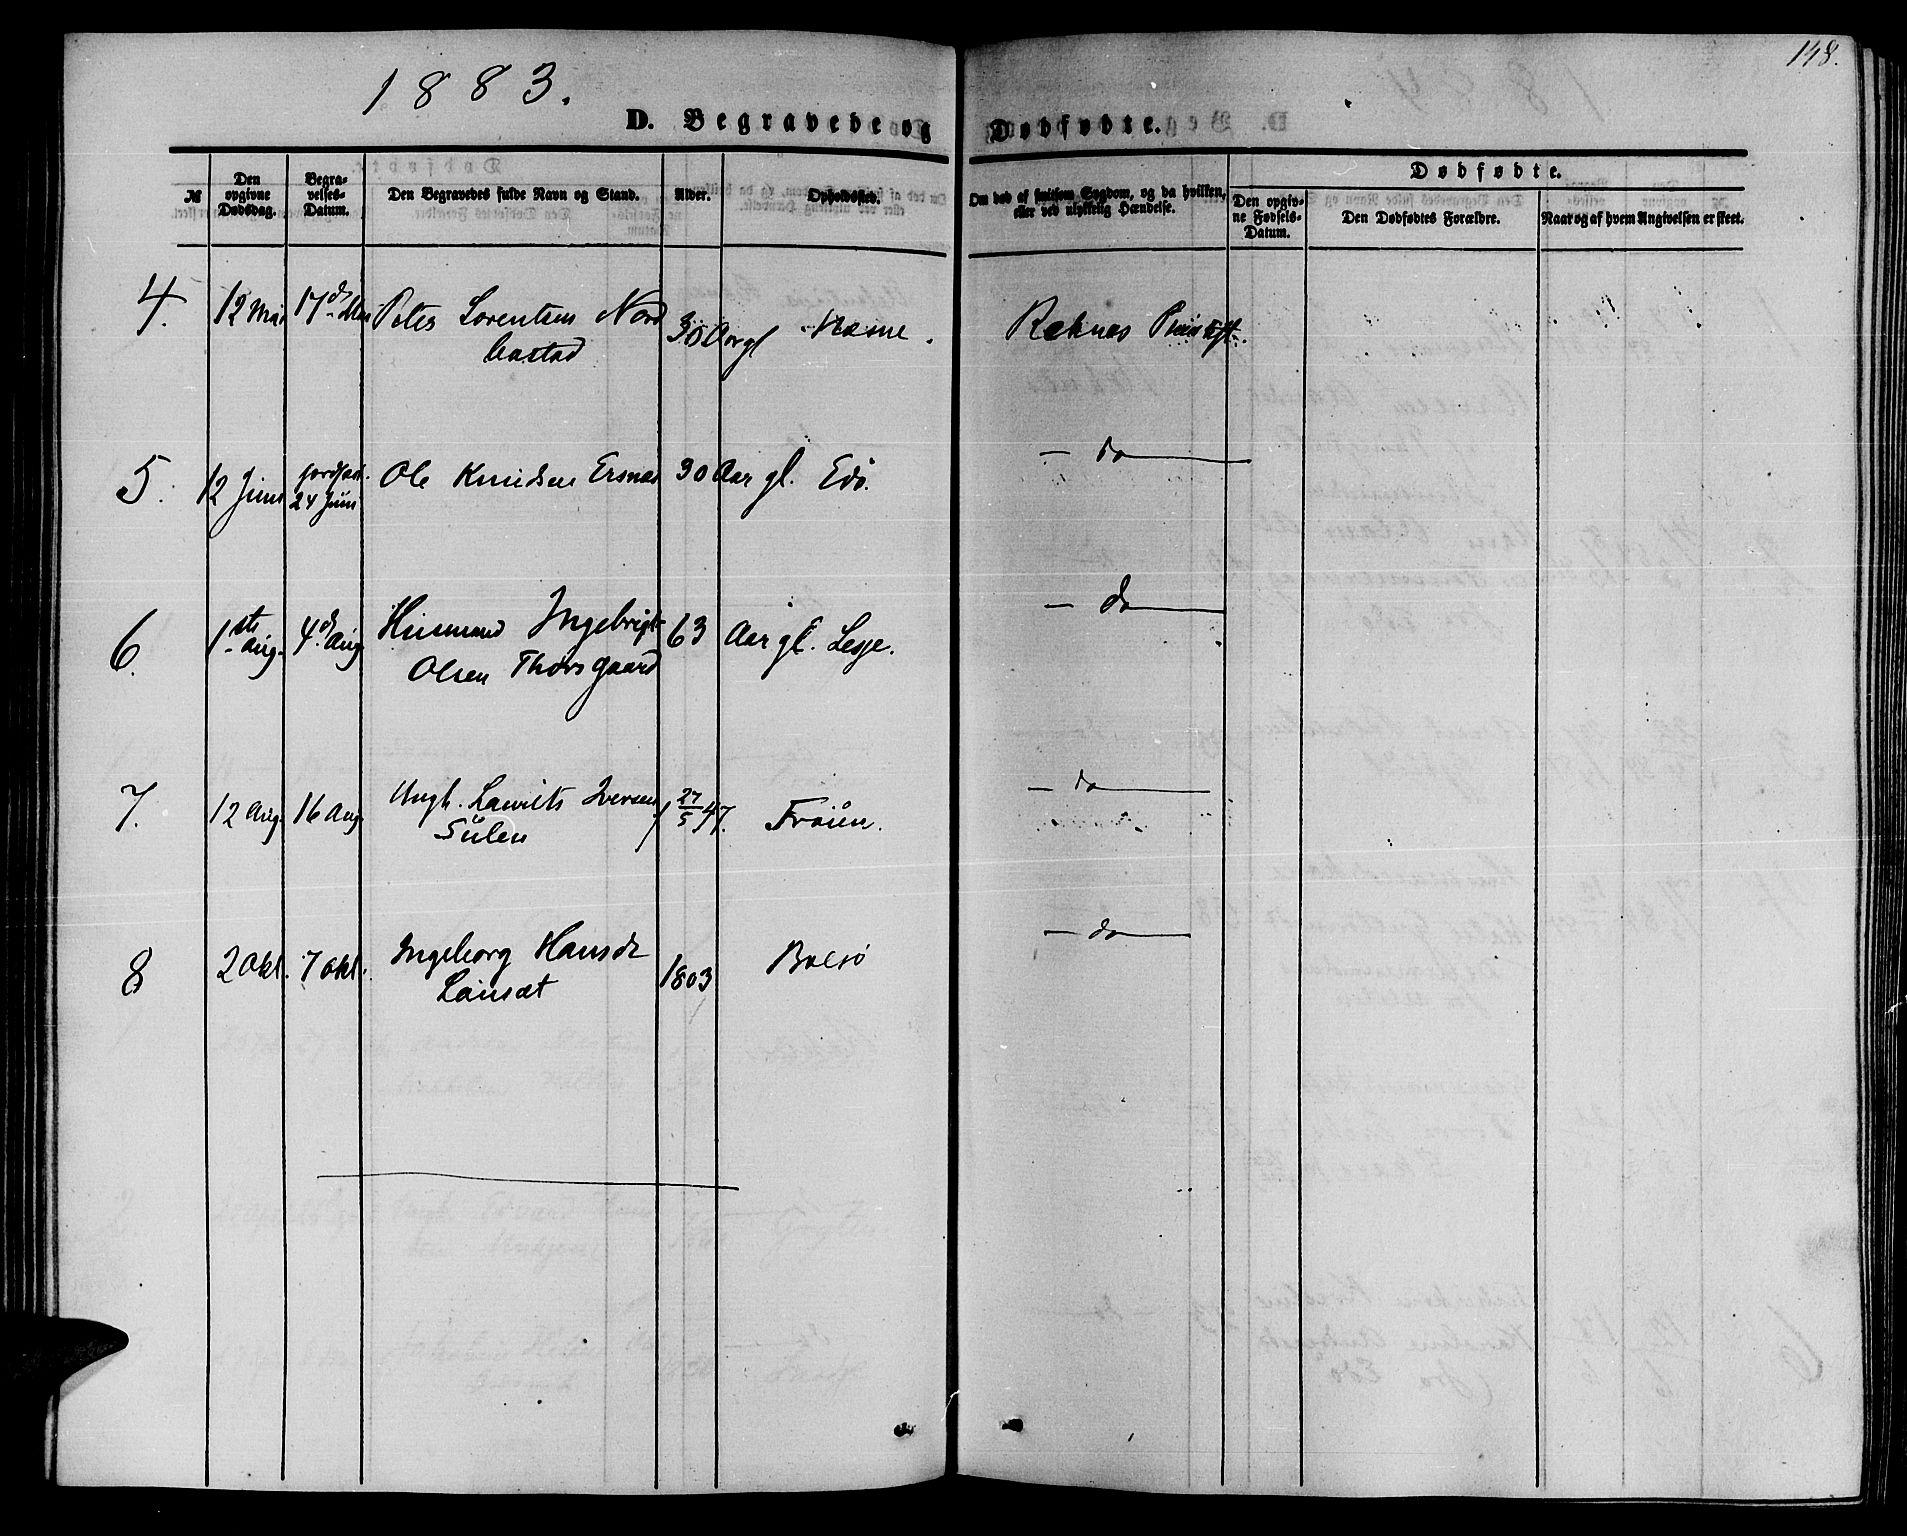 148.
1883.
D. Begravede og Dødfødte.
№
Den opgivne Dødsdag.
Begravelses-Datum.
Den Begravedes fulde Navn og Stand.
Alder.
Opholdssted.
Om død af smitsom Sygdom, og da hvilken, eller ved ulykkelig Hændelse.
Dødfødte.
Den opgivne Fødsels-Datum.
Den Dødfødtes Forældre.
Naar og af hvem Angivelsen er skeet.
4. 12 Mai 17de Mai Peter Lorentsen Nord 30 Aar gl Næsne. Reknæs Pleiestift.
bostad
5. 12 Juni jordfæst. 24 Juni Ole Knudsen Ersnæs 30 Aar gl. Edø. — do —
6. 1ste Aug. 4de Aug. Husmand Ingebrigt 63 Aar gl. Lesje. — do —
Olsen Thorsgaard
7. 12 Aug. 16 Aug. Ungk. Laurits Iversen 27/5 47. Frøien. — do —
Sülen
8 2 Okt. 7 Okt. Ingeborg Hansdr 1803 Bolsø — do —
Lønsæt